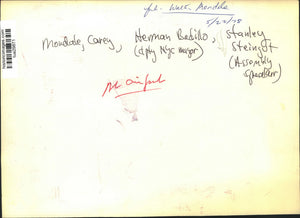 Walt. Mondale
5/23/78
Mondale, Carey, Herman Badillo, Stanley
(dpty Nyc mayor) Steingut
(Assembly
speaker)